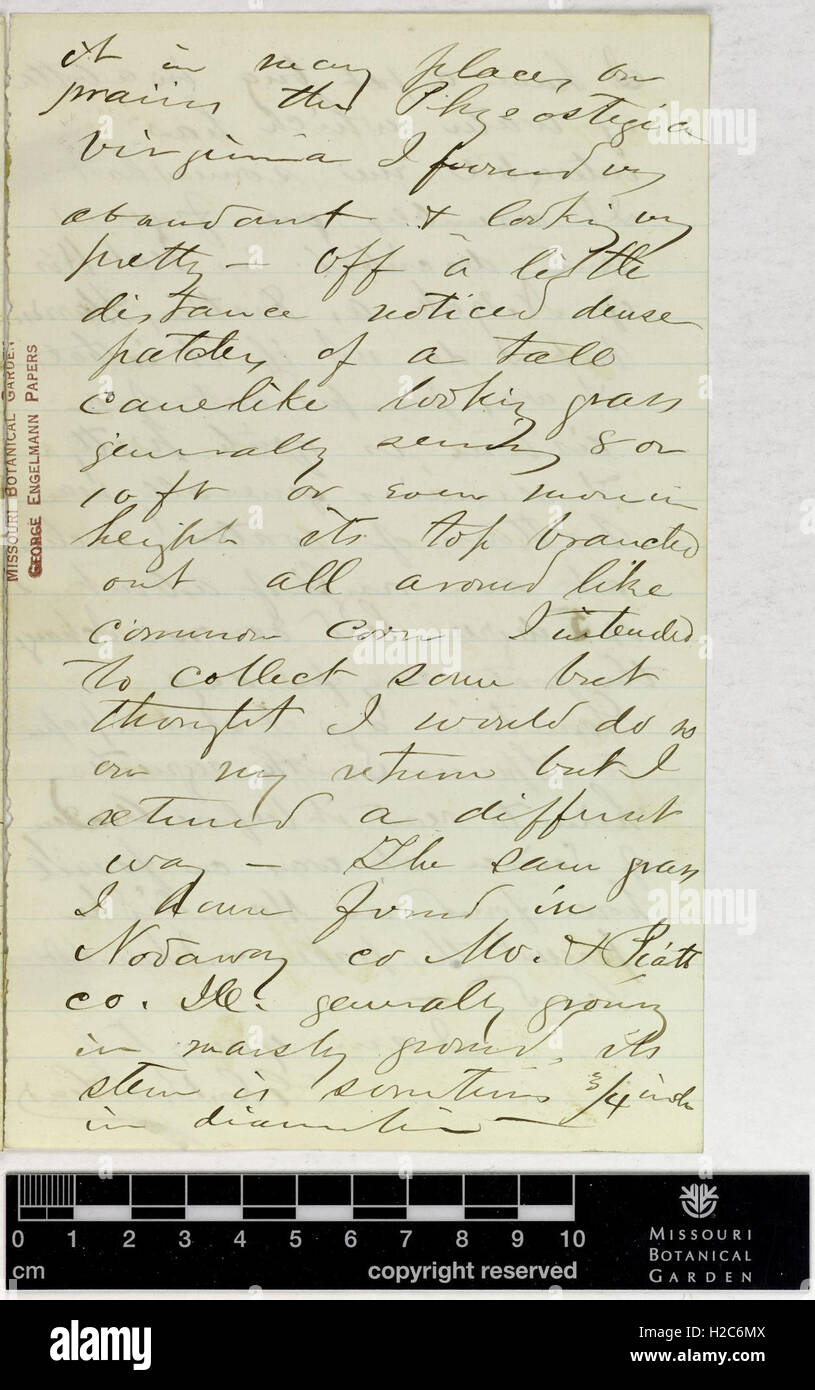 it in many places on
prairies the Physostegia
Virginia I found very
abundant & looking very
pretty — Off a little
distance noticed dense
patches of a tall
canelike looking grass
generally seeming 8 or
10 ft or even more in
height its top branched
out all around like
common corn I intended
to collect some but
thought I would do so
on my return but I
returned a different
way — The same grass
I have found in
Nodaway co Mo. & Piatt
co. Ill. generally growing
in marshy ground, its
stem is sometimes 3/4 inch
in diameter —
MISSOURI BOTANICAL GARDEN
GEORGE ENGELMANN PAPERS
0 1 2 3 4 5 6 7 8 9 10
cm
copyright reserved
MISSOURI
BOTANICAL
GARDEN
alamy
alamy
a
a
a
alamy
Image ID: H2C6MX
www.alamy.com
H2C6MX